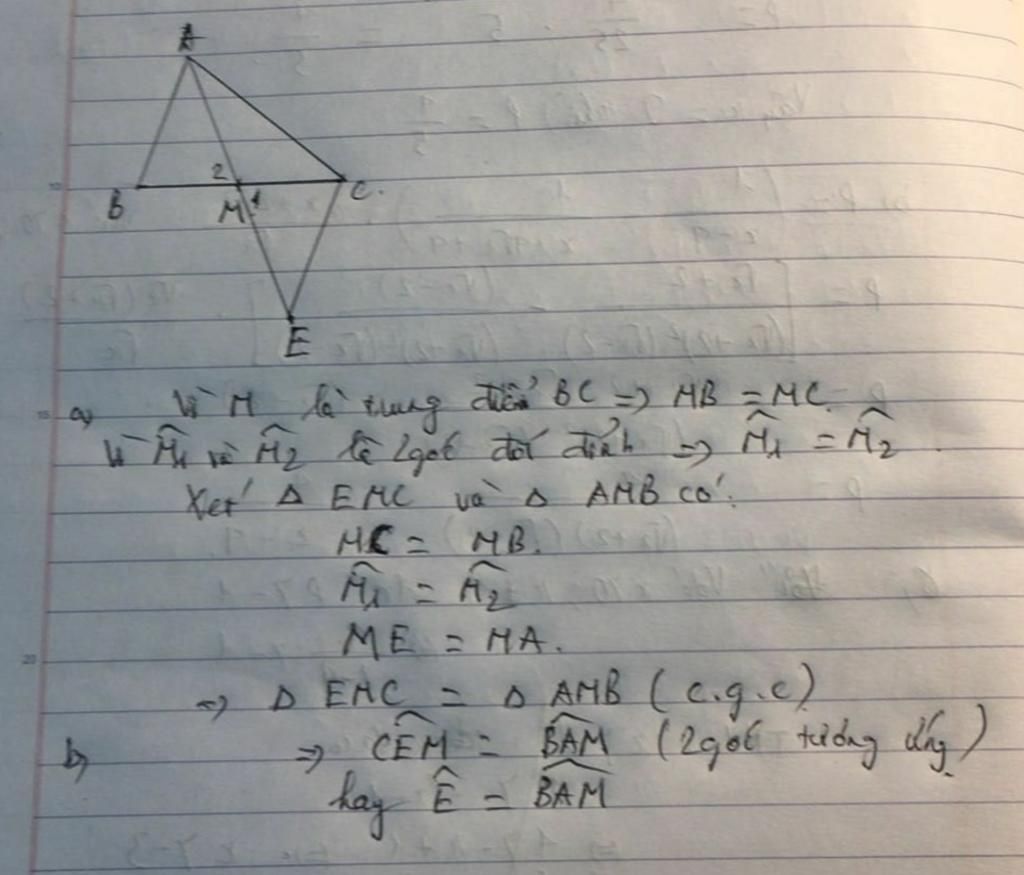 A
2
B
M
1
C.
E
a) Vì M là trung điểm BC => MB = MC.
Vì M̂1 và M̂2 là 2 góc đối đỉnh => M̂1 = M̂2.
Xét Δ EMC và Δ AMB có:
MC = MB.
M̂1 = M̂2
ME = MA.
=> Δ EMC = Δ AMB (c.g.c)
b) => CEM̂ = BAM̂ (2 góc tương ứng)
hay Ê = BAM̂